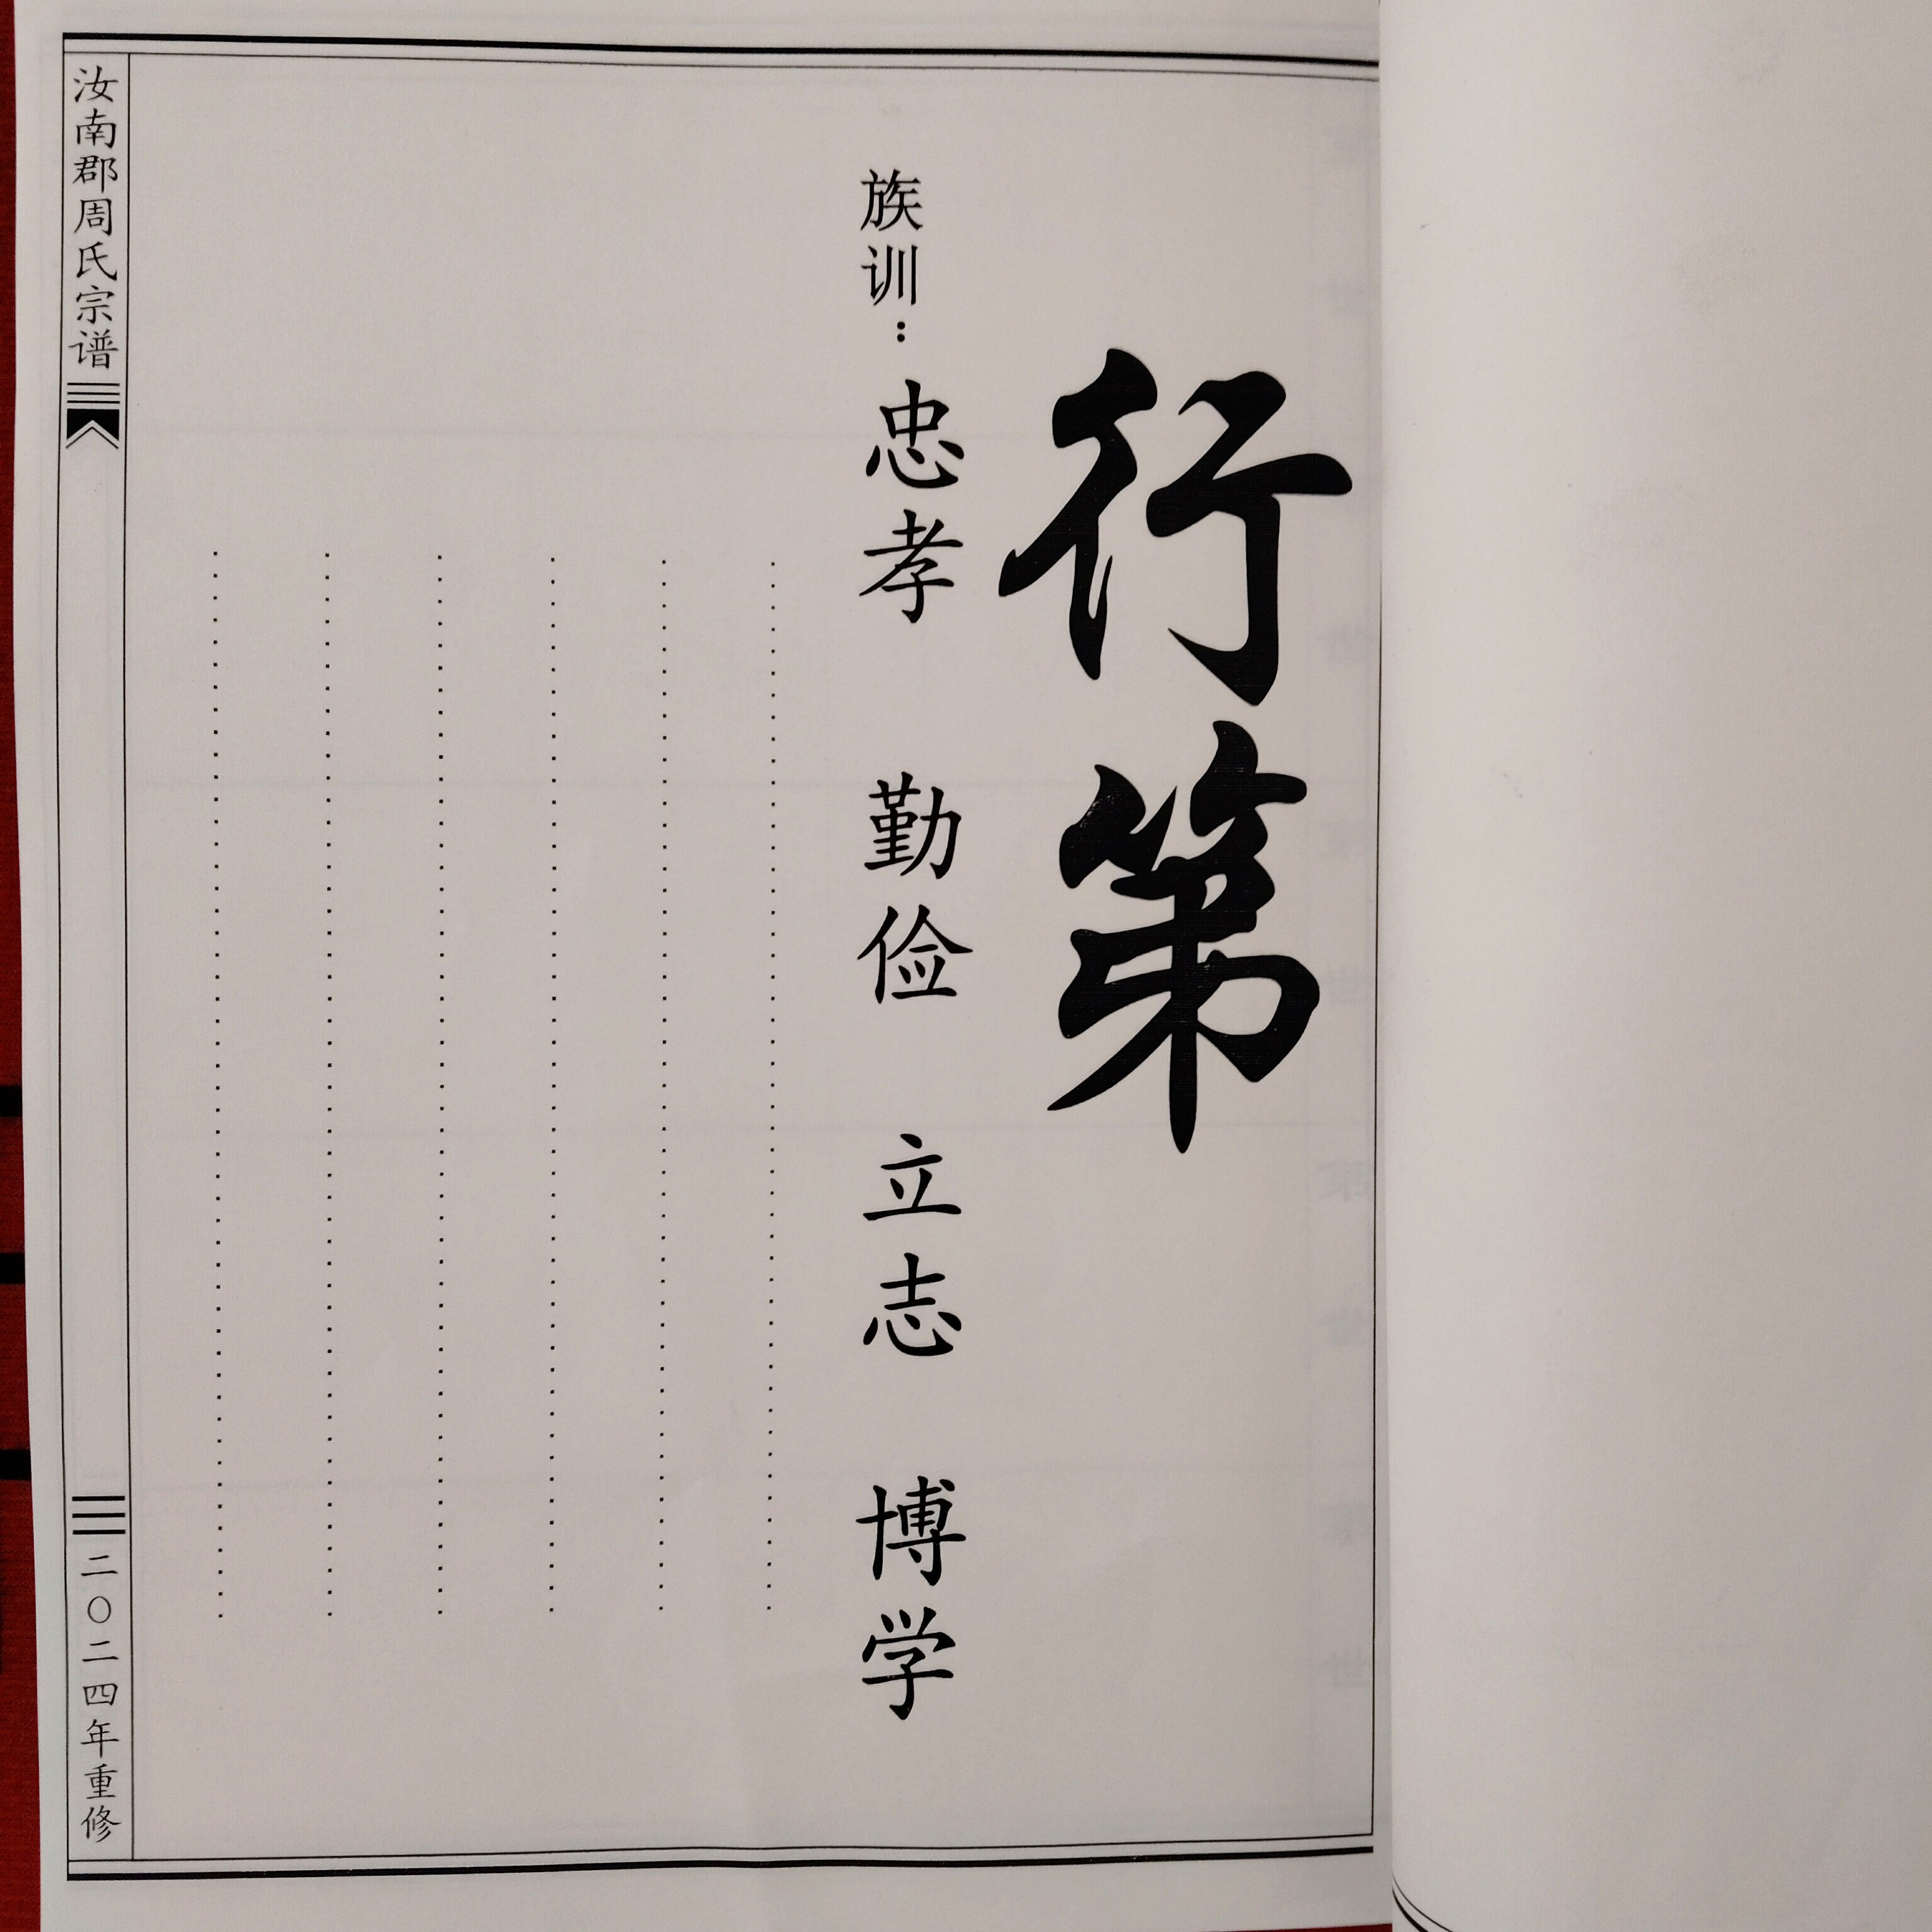 行第
族训：忠孝 勤俭 立志 博学
汝南郡周氏宗谱
二〇二四年重修